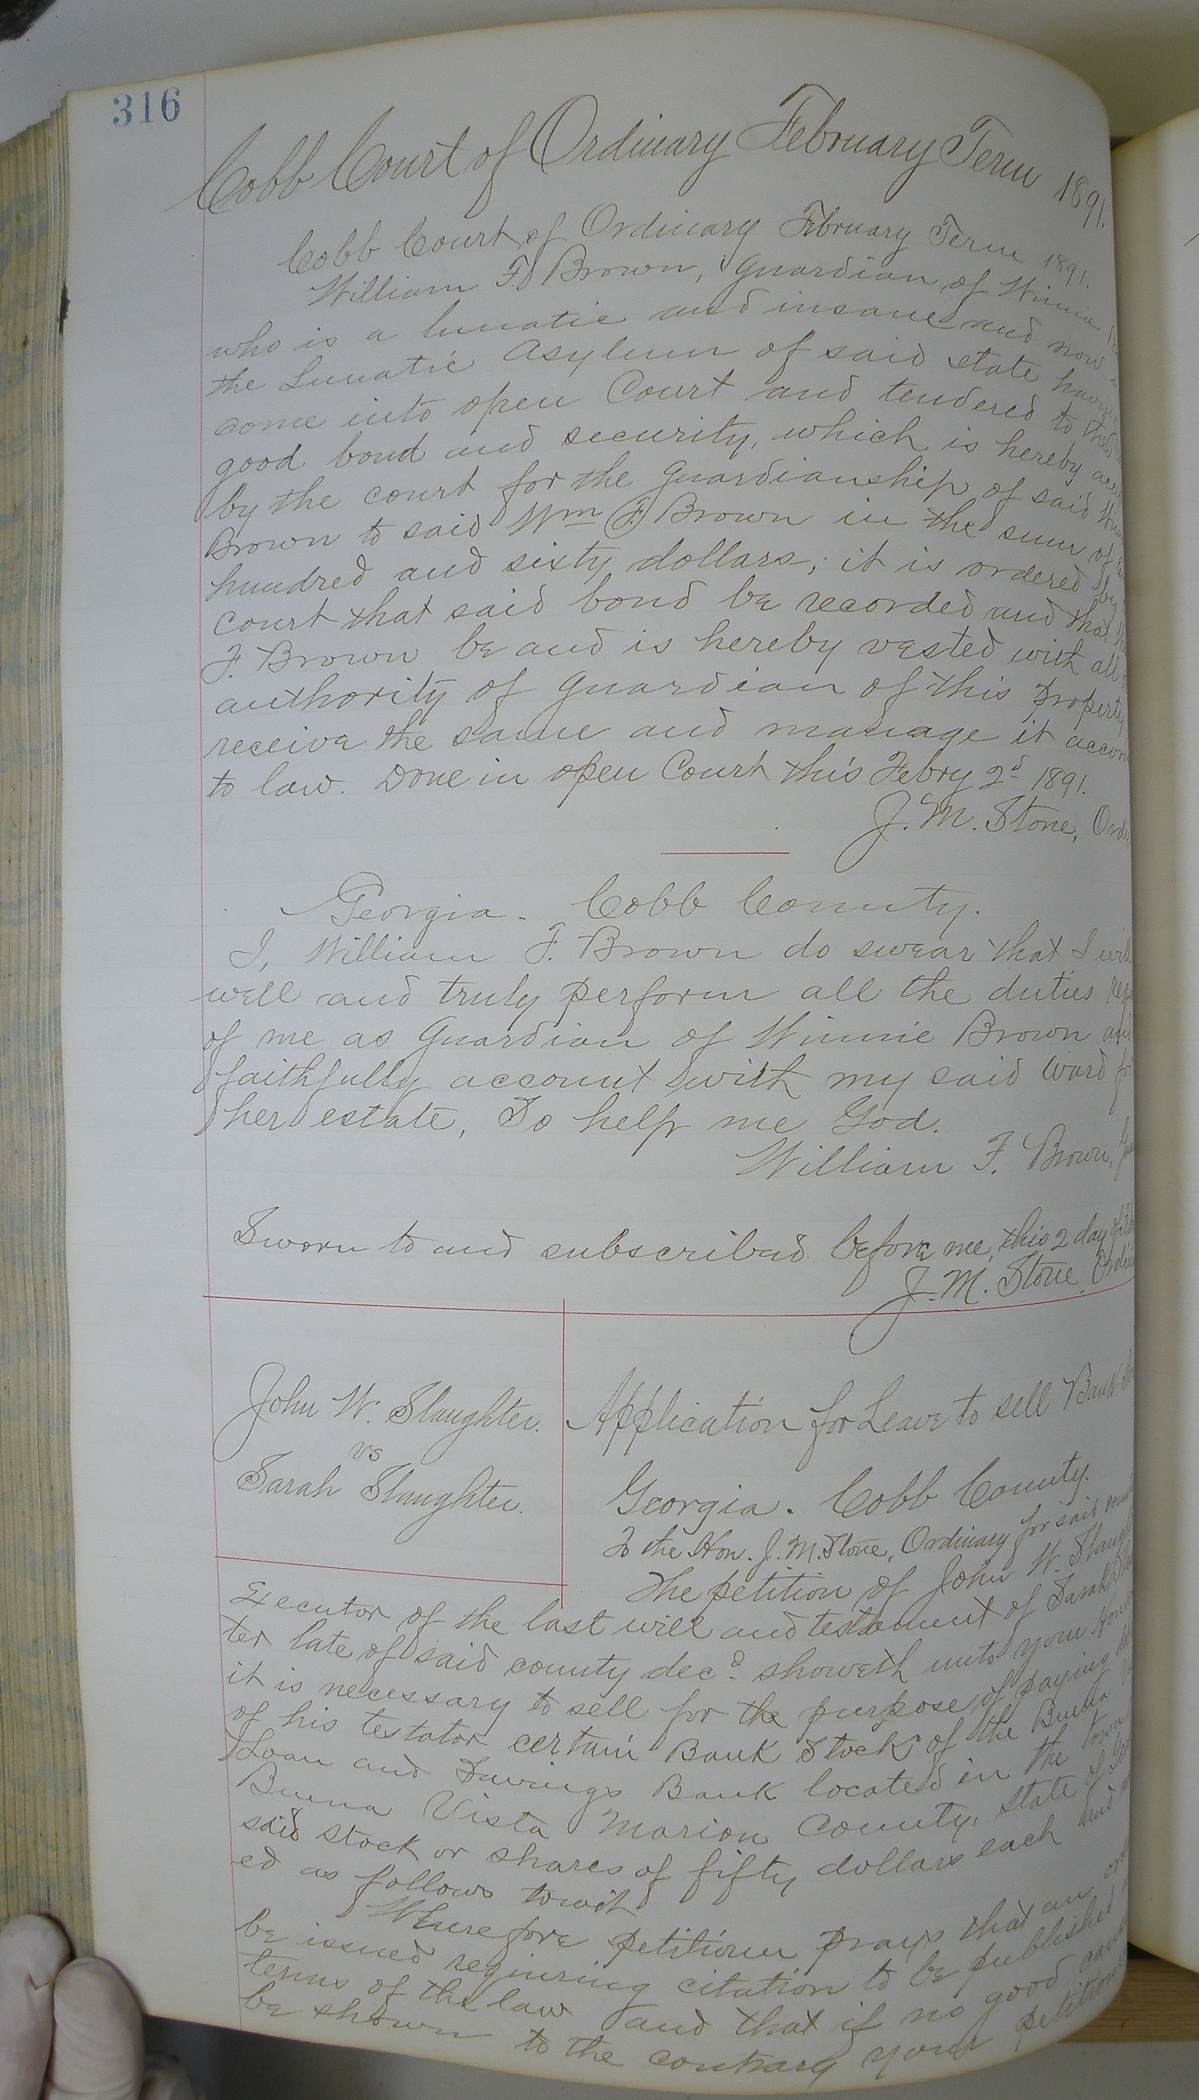 316
Cobb Court of Ordinary February Term 1891.
Cobb Court of Ordinary February Term 1891.
William F. Brown, Guardian of Winnie
who is a lunatic and insane and now
the Lunatic Asylum of said state having
come into open Court and tendered to the
good bond and security, which is hereby
by the court for the guardianship of said
Brown to said Wm F. Brown in the sum of
hundred and sixty dollars; it is ordered by
court that said bond be recorded and that
F. Brown be and is hereby vested with all
authority of Guardian of this property
receive the same and manage it accor
to law. Done in open Court this Febry 2d 1891.
J. M. Stone, Ord
Georgia. Cobb County.
I, William F. Brown do swear that I will
well and truly perform all the duties req
of me as Guardian of Winnie Brown and
faithfully account with my said Ward for
her estate, So help me God.
William F. Brown,
Sworn to and subscribed before me, this 2 day of
J. M. Stone, Ordin
John W. Slaughter.
vs
Sarah Slaughter.
Application for Leave to sell Bank
Georgia. Cobb County.
To the Hon. J. M. Stone, Ordinary for said
The petition of John W. Slaugh
Executor of the last will and testament of Sarah
ter late of said county decd. showeth unto your Hon
it is necessary to sell for the purpose of paying
of his testator certain Bank Stock of the Buena
Loan and Savings Bank located in the town
Buena Vista Marion County, State of
said stock or shares of fifty dollars each and
ed as follows towit
Wherefore petitioner prays that an
be issued requiring citation to be published
terms of the law and that if no good cause
be shown to the contrary your petition